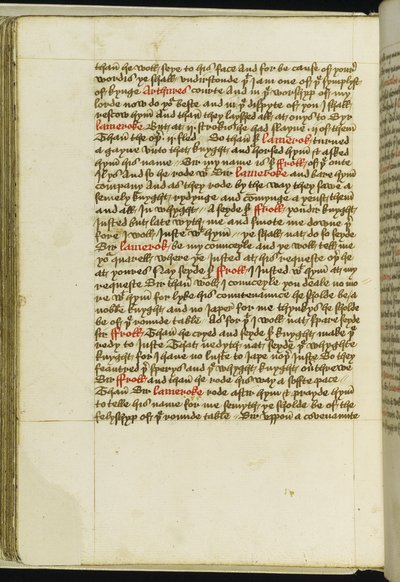 than he woll seye to his face And for be cause of youre
wordis ye shall undirstonde þt I am one of þe symplyst
of kynge Arthures courte And in þe worshyp of my
lorde now do yor beste and in þe dispyte of you I shall
rescow hym And than they laysshed all at onys to Syr
lamerok But at ij strokis he had slayne ij of them
Than the oþer ij fled So than sr lamerok turned
a gayne unto that knyght and horsed hym & asked
hym his name Sir my name is sr Froll of þe oute
Ilys And so he rode wt Sir lameroke and bare hym
company And as they rode by the way they sawe a
semely knyght rydynge and comynge a yenst them
and all In whyght A seyde sr Froll yondir knyght
Justed but late wyth me and smote me downe þer
fore I woll Juste wt hym ye shall nat do so seyde
Sir lamerok be my counceyle and ye woll tell me
yor quarell where ye Justed at his requeste oþer he
at youres Nay seyde sr Froll I Justed wt hym at my
requeste Sir than woll I counceyle you deale no mo
re wt hym for lyke his countenaunce he sholde be a
noble knyght and no Japer for me thynkys he sholde
be of þe rounde table As for þt I woll nat spare seyde
sir Froll Than he cryed and seyde sr knyght make þe
redy to Juste That nedyth nat seyde þe whyghte
knyght for I have no luste to Jape noþer Juste So they
feautred þer sperys and þe whyght knyght outhrewe
Sir Froll and than he rode his way a soffte pace
Than Sir lameroke rode afftir hym & prayde hym
to telle his name for me semyth ye sholde be of the
felyshyp of þe rounde table Sir uppon a covenaunte